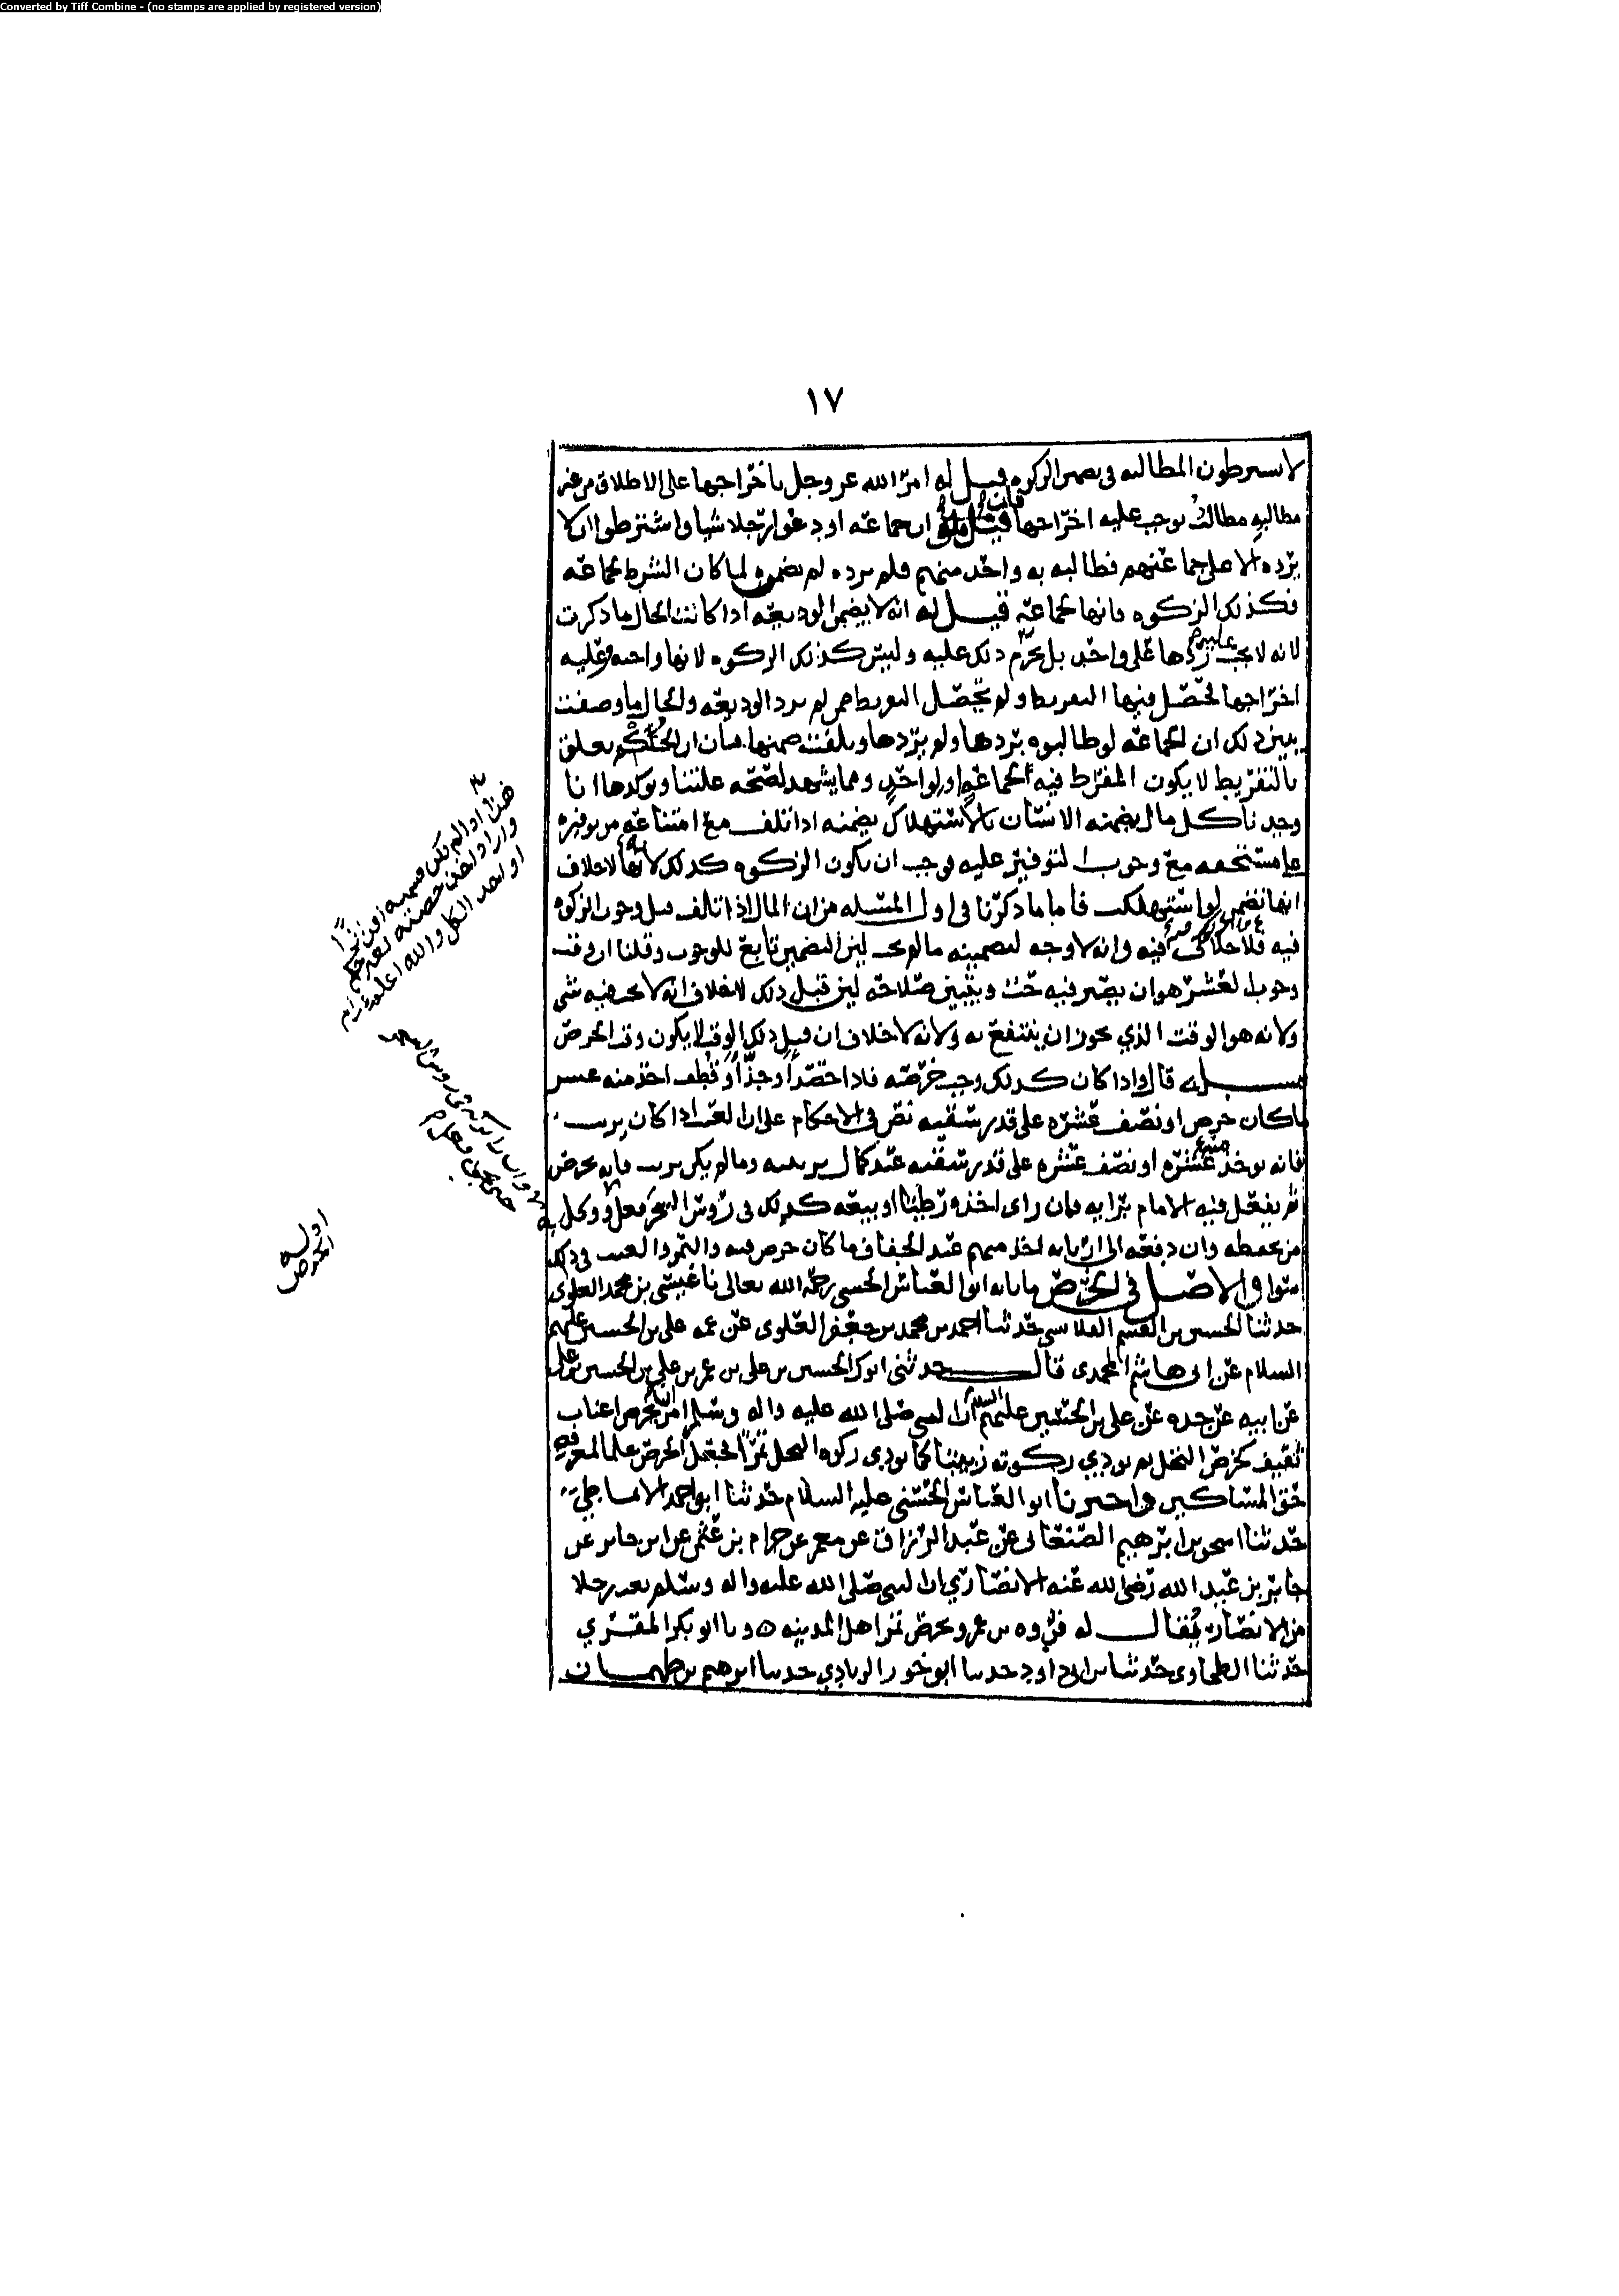 Converted by Tiff Combine - (no stamps are applied by registered version)
١٧
لا يشترطون المطالبة في تضمين الزكوة قيل له امر الله عز وجل باخراجها على الاطلاق من غير
مطالبة مطالب يوجب عليه اخراجها فان قيل ان جماعة اودعوا رجلا شيا واشترطوا ان لا
يرده الا على جماعتهم فطالبه به واحد منهم فلم يرده لم يضمنه لما كان الشرط لجماعة
فكذلك الزكوة فانها لجماعة قيل له انه لا يضمن الوديعة اذا كانت الحال ما ذكرت
لانه لا يجب عليه ردها على واحد بل يحرم ذلك عليه وليس كذلك الزكوة لانها واجبة وعليه
اخراجها فحصل فيها التفريط ولم يحصل التفريط ممن لم يرد الوديعة والحال ما وصفت
يبين ذلك ان الجماعة لو طالبوه بردها ولم يردها وتلفت ضمنها فبان ان الحكم يعلق
بالتفريط لا يكون المفرط فيه لجماعة او لواحد ومما يشهد لصحة علتنا ويوكدها انا
وجدنا كل مال يضمنه الانسان بالاستهلاك يضمنه اذا تلف مع امتناعه من توفيره
على مستحقه مع وجوب التوفير عليه فوجب ان يكون الزكوة كذلك لانها لا خلاف
انها تضمن لو استهلكت فاما ما ذكرنا في اول المسئلة من ان المال اذا تلف قبل وجوب الزكوة
فيه فلا خلاف فيه وانه لا وجه لتضمينه ما لم يجب لان التضمين تابع للوجوب وقلنا ان وقت
وجوب العشر هو ان يصير فيه حب ويتبين صلاحه لان قبل ذلك لا خلاف انه لا يجب فيه شي
ولانه هو الوقت الذي يجوز ان ينتفع به ولانه لا خلاف ان قبل ذلك الوقت لا يكون وقت الخرص
مسئلة قال واذا كان كذلك وجب خرصه فاذا حصد او جذ او قطف اخذ منه عشر
ما كان خرص او نصف عشره على قدر سقيه نص في الاحكام على ان العنب اذا كان يزبب
فانه يوخذ عشره او نصف عشره على قدر سقيه عند كمال تزبيبه وما لم يكن يزبب فانه يخرص
ثم يفعل فيه الامام برايه فان راى اخذه رطبا او بيعه كذلك في روس الشجر فعل ووكل به
من يحفظه وان دفعه الى اربابه اخذ منهم عند الجفاف ما كان خرص فيه والتمر والعنب في ذلك
سوا والاصل في الخرص ما نا به ابو العباس الحسني رحمه الله تعالى نا عيسى بن محمد العلوي
حدثنا الحسين بن القسم القلانسي حدثنا احمد بن محمد بن جعفر العلوي عن عمه علي بن الحسين عليهم
السلام عن ابي هاشم المحمدي قال حدثني ابوك الحسين بن علي بن عمر بن علي بن الحسين بن علي
عن ابيه عن جده عن علي بن الحسين عليهم السلام ان النبي صلى الله عليه واله وسلم امر بخرص اعناب
ثقيف كخرص النخل ثم يودي زكوته زبيبا كما يودي زكوة النخل تمرا فجعل الخرص علما لمعرفة
حق المساكين واخبرنا ابو العباس الحسني عليه السلام حدثنا ابو احمد الانماطي
حدثنا اسحق بن ابرهيم الصنعاني عن عبد الرزاق عن معمر عن حرام بن عثمن عن ابن جابر عن
جابر بن عبد الله رضي الله عنه الانصاري ان النبي صلى الله عليه واله وسلم بعث رجلا
من الانصار يقال له فروة بن عمرو يخرص تمر اهل المدينة ونا ابو بكر المقري
حدثنا الطحاوي حدثنا بن ابي داود حدثنا ابو عون الزيادي حدثنا ابرهيم بن طهمان
هذا اذا لم يكن قسمته
او اخذ الكل والله اعلم